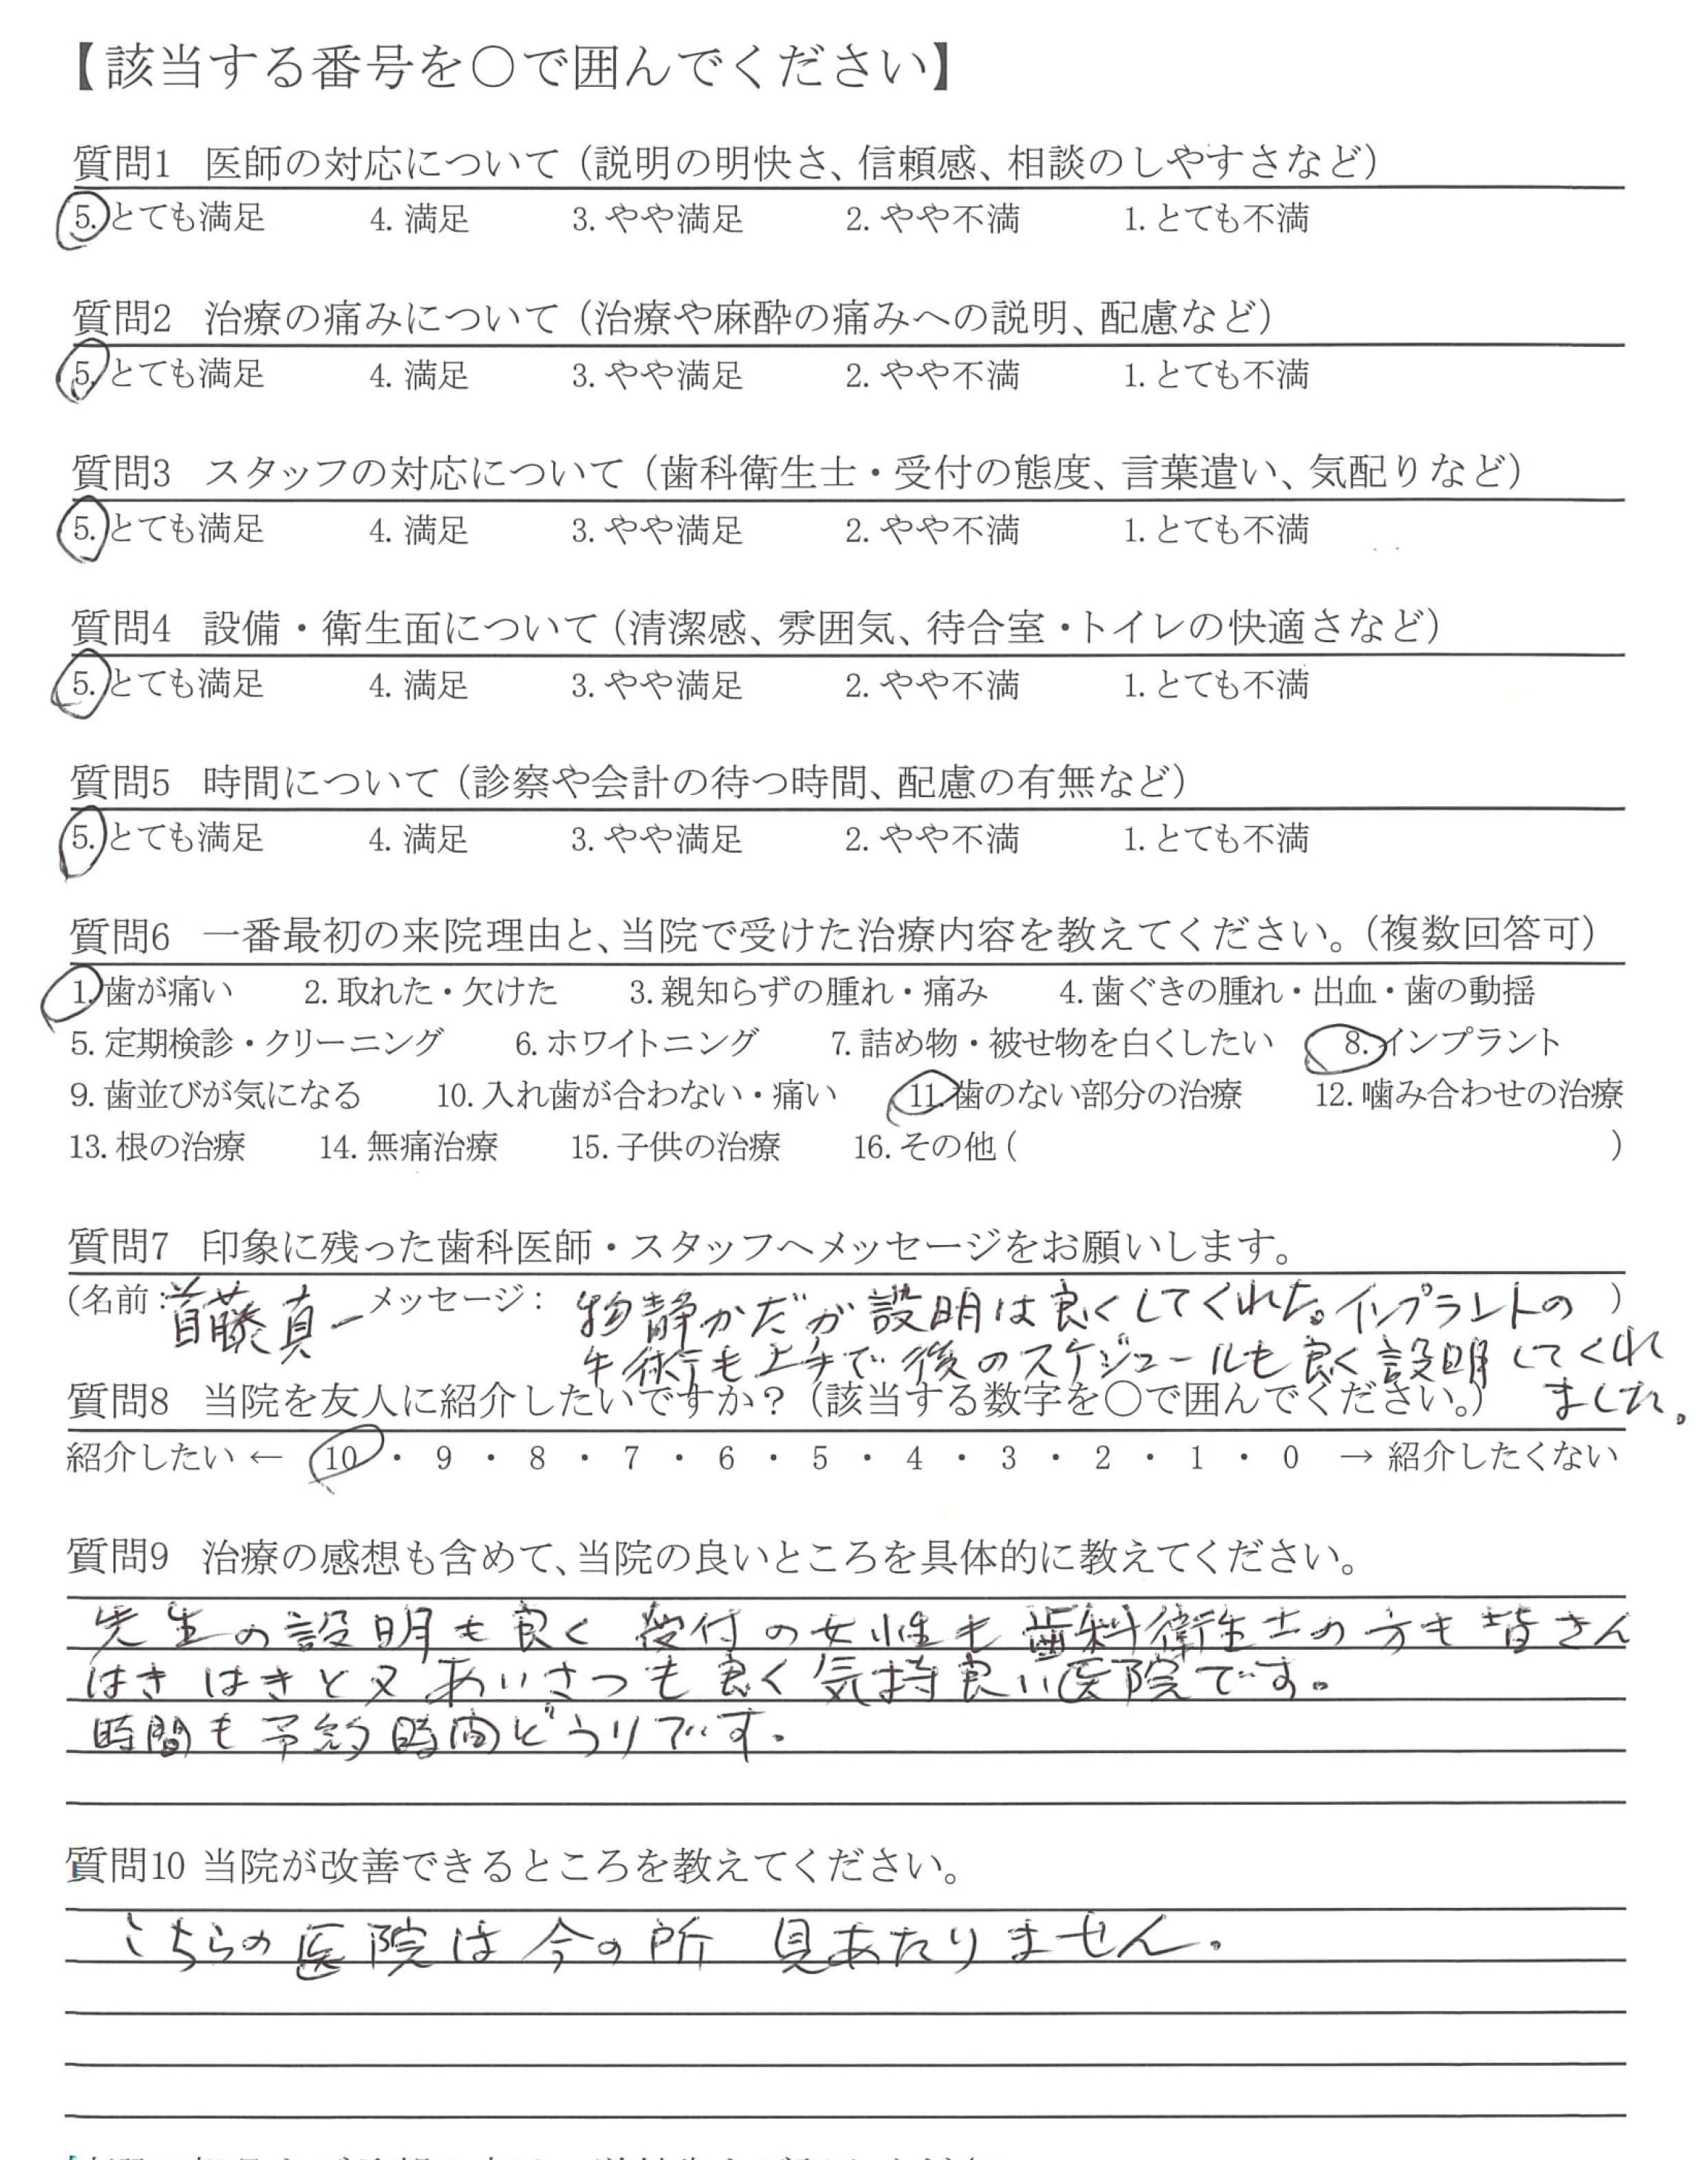 【該当する番号を○で囲んでください】
質問1 医師の対応について（説明の明快さ、信頼感、相談のしやすさなど）
5. とても満足 4. 満足 3. やや満足 2. やや不満 1. とても不満
質問2 治療の痛みについて（治療や麻酔の痛みへの説明、配慮など）
5. とても満足 4. 満足 3. やや満足 2. やや不満 1. とても不満
質問3 スタッフの対応について（歯科衛生士・受付の態度、言葉遣い、気配りなど）
5. とても満足 4. 満足 3. やや満足 2. やや不満 1. とても不満
質問4 設備・衛生面について（清潔感、雰囲気、待合室・トイレの快適さなど）
5. とても満足 4. 満足 3. やや満足 2. やや不満 1. とても不満
質問5 時間について（診察や会計の待つ時間、配慮の有無など）
5. とても満足 4. 満足 3. やや満足 2. やや不満 1. とても不満
質問6 一番最初の来院理由と、当院で受けた治療内容を教えてください。（複数回答可）
1. 歯が痛い 2. 取れた・欠けた 3. 親知らずの腫れ・痛み 4. 歯ぐきの腫れ・出血・歯の動揺
5. 定期検診・クリーニング 6. ホワイトニング 7. 詰め物・被せ物を白くしたい 8. インプラント
9. 歯並びが気になる 10. 入れ歯が合わない・痛い 11. 歯のない部分の治療 12. 噛み合わせの治療
13. 根の治療 14. 無痛治療 15. 子供の治療 16. その他（ ）
質問7 印象に残った歯科医師・スタッフへメッセージをお願いします。
（名前：首藤真一 メッセージ： 物静かだが説明は良くしてくれた。インプラントの ）
手術も上手で後のスケジュールも良く説明してくれ
ました。
質問8 当院を友人に紹介したいですか？（該当する数字を○で囲んでください。）
紹介したい ← 10 ・ 9 ・ 8 ・ 7 ・ 6 ・ 5 ・ 4 ・ 3 ・ 2 ・ 1 ・ 0 → 紹介したくない
質問9 治療の感想も含めて、当院の良いところを具体的に教えてください。
先生の説明も良く 受付の女性も歯科衛生士の方も皆さん
はきはきと又あいさつも良く気持良い医院です。
時間も予約時間どうりです。
質問10 当院が改善できるところを教えてください。
こちらの医院は今の所 見あたりません。